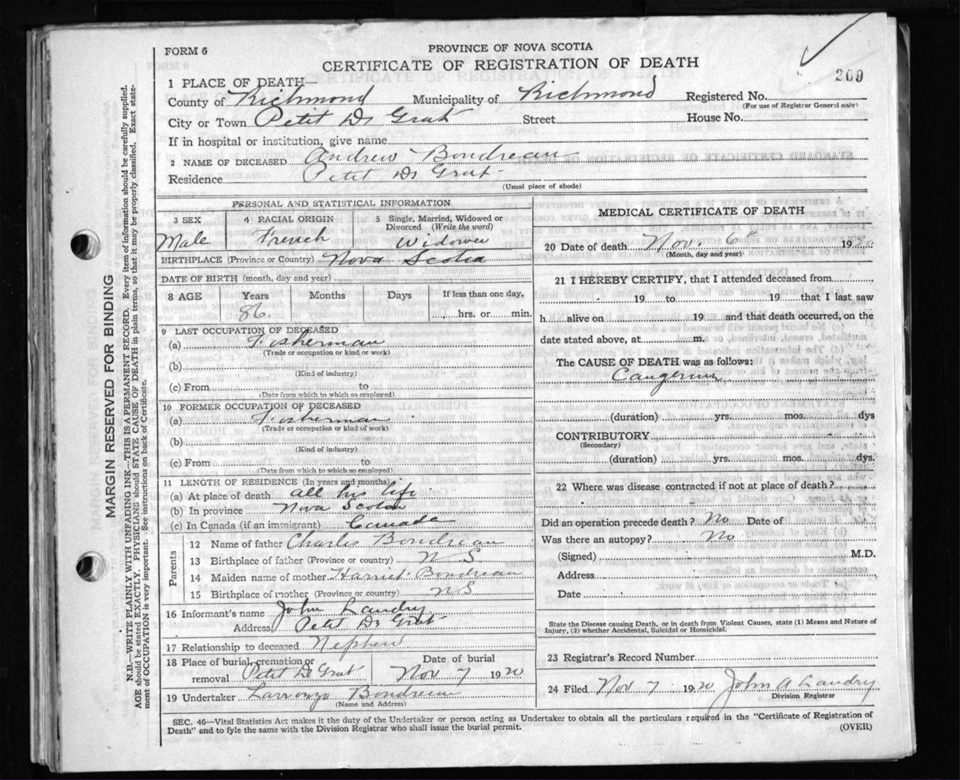 FORM 6
PROVINCE OF NOVA SCOTIA
CERTIFICATE OF REGISTRATION OF DEATH
209
1 PLACE OF DEATH—
County of Richmond Municipality of Richmond Registered No.
(For use of Registrar General only)
City or Town Petit De Grat Street House No.
If in hospital or institution, give name
2 NAME OF DECEASED Andrew Boudreau
Residence Petit De Grat
(Usual place of abode)
PERSONAL AND STATISTICAL INFORMATION
3 SEX 4 RACIAL ORIGIN 5 Single, Married, Widowed or Divorced (Write the word)
Male French Widower
BIRTHPLACE (Province or Country) Nova Scotia
DATE OF BIRTH (month, day and year)
8 AGE Years Months Days If less than one day,
86 hrs. or min.
9 LAST OCCUPATION OF DECEASED
(a) Fisherman
(Trade or occupation or kind or work)
(b)
(Kind of industry)
(c) From to
(Date from which to which so employed)
10 FORMER OCCUPATION OF DECEASED
(a) Fisherman
(Trade or occupation or kind of work)
(b)
(Kind of industry)
(c) From to
(Date from which to which so employed)
11 LENGTH OF RESIDENCE (In years and months)
(a) At place of death all his life
(b) In province Nova Scotia
(c) In Canada (if an immigrant) Canada
Parents
12 Name of father Charles Boudreau
13 Birthplace of father (Province or country) N S
14 Maiden name of mother Harriet Boudreau
15 Birthplace of mother (Province or country) N S
16 Informant's name John Landry
Address Petit De Grat
17 Relationship to deceased Nephew
18 Place of burial, cremation or removal Petit De Grat Date of burial Nov 7 1920
19 Undertaker Boudreau
(Name and Address)
MEDICAL CERTIFICATE OF DEATH
20 Date of death Nov. 6 1920
(Month, day and year)
21 I HEREBY CERTIFY, that I attended deceased from
19 to 19 that I last saw
h alive on 19 and that death occurred, on the
date stated above, at m.
The CAUSE OF DEATH was as follows:
(duration) yrs. mos. dys
CONTRIBUTORY
(Secondary)
(duration) yrs. mos. dys.
22 Where was disease contracted if not at place of death?
Did an operation precede death? No Date of
Was there an autopsy? No
(Signed) M.D.
Address
Date
State the Disease causing Death, or in death from Violent Causes, state (1) Means and Nature of
Injury, (2) whether Accidental, Suicidal or Homicidal.
23 Registrar's Record Number
24 Filed Nov 7 1920 John A Landry
Division Registrar
SEC. 46—Vital Statistics Act makes it the duty of the Undertaker or person acting as Undertaker to obtain all the particulars required in the "Certificate of Registration of
Death" and to fyle the same with the Division Registrar who shall issue the burial permit. (OVER)
MARGIN RESERVED FOR BINDING
N.B.—WRITE PLAINLY WITH UNFADING INK—THIS IS A PERMANENT RECORD. Every item of information should be carefully supplied.
AGE should be stated EXACTLY. PHYSICIANS should STATE CAUSE OF DEATH in plain terms, so that it may be properly classified. Exact state-
ment of OCCUPATION is very important. See instructions on back of Certificate.